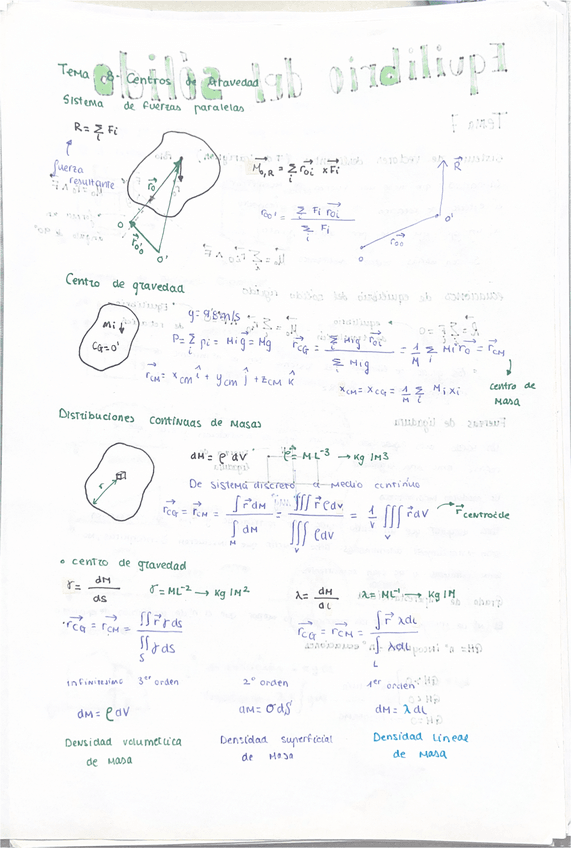 Tema 8- Centros de Gravedad
Sistema de fuerzas paralelas
R = Σ_i Fi
fuerza
resultante
M⃗_{O,R} = Σ_i r⃗_{Oi} × F⃗i
r_{OO'} = Σ_i Fi r⃗_{Oi} / Σ_i Fi
R⃗
O'
r⃗_{OO'}
O
r⃗_O
O
r⃗_{O'O}
O'
Centro de gravedad
Mi ↓
CG=O'
P = Σ_i pi = Mi g = Mg
r⃗_{CG} = Σ_i Mi g r⃗_{Oi} / Σ_i Mi g = 1/M Σ_i Mi r⃗_O = r⃗_{CM}
r⃗_{CM} = x_{CM} î + y_{CM} ĵ + z_{CM} k̂
x_{CM} = x_{CG} = 1/M Σ_i Mi xi
centro de
Masa
Distribuciones continuas de Masas
r
dM = ρ dV
ρ = ML⁻³ → Kg/M3
De sistema discreto a medio continuo
r⃗_{CG} = r⃗_{CM} = ∫_M r⃗ dM / ∫_M dM = ∭_V r⃗ ρdV / ∭_V ρdV = 1/V ∭_V r⃗ dV → r⃗ centroide
° centro de gravedad
σ = dM / dS
σ = ML⁻² → Kg/M²
λ = dM / dL
λ = ML⁻¹ → Kg/M
r⃗_{CG} = r⃗_{CM} = ∬ r⃗ σ dS / ∬_S σ dS
r⃗_{CG} = r⃗_{CM} = ∫ r⃗ λdL / ∫_L λdL
Infinitesimo 3er orden
2º orden
1er orden
dM = ρ dV
dM = σ dS
dM = λ dL
Densidad volumétrica
de Masa
Densidad superficial
de Masa
Densidad lineal
de Masa